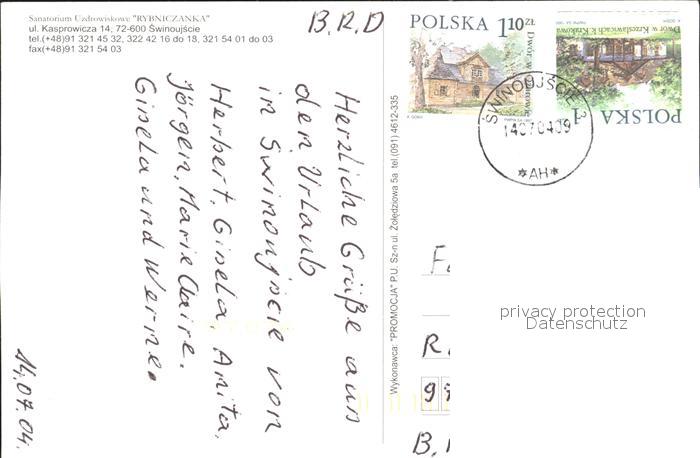 Sanatorium Uzdrowiskowe "RYBNICZANKA"
ul. Kasprowicza 14; 72-600 Świnoujście
tel.(+48)91 321 45 32, 322 42 16 do 18, 321 54 01 do 03
fax(+48)91 321 54 03
B.R.D
Herzliche Grüße aus
den Urlaub
in Swinoujscie von
Herbert, Gisela Anita,
Jörgen, Marie Claire,
Gisela und Werner
14.07.04.
Wykonawca: "PROMOCJA" P.U. Sz-n ul. Żołędziowa 5a tel.(091) 4612-335
POLSKA 1,10 ZŁ
Dwór w
Dwór w Krzesławicach k. Krakowa
POLSKA 1
ŚWINOUJŚCIE 3
14070409
*AH*
privacy protection
Datenschutz
F
R.
9
B.